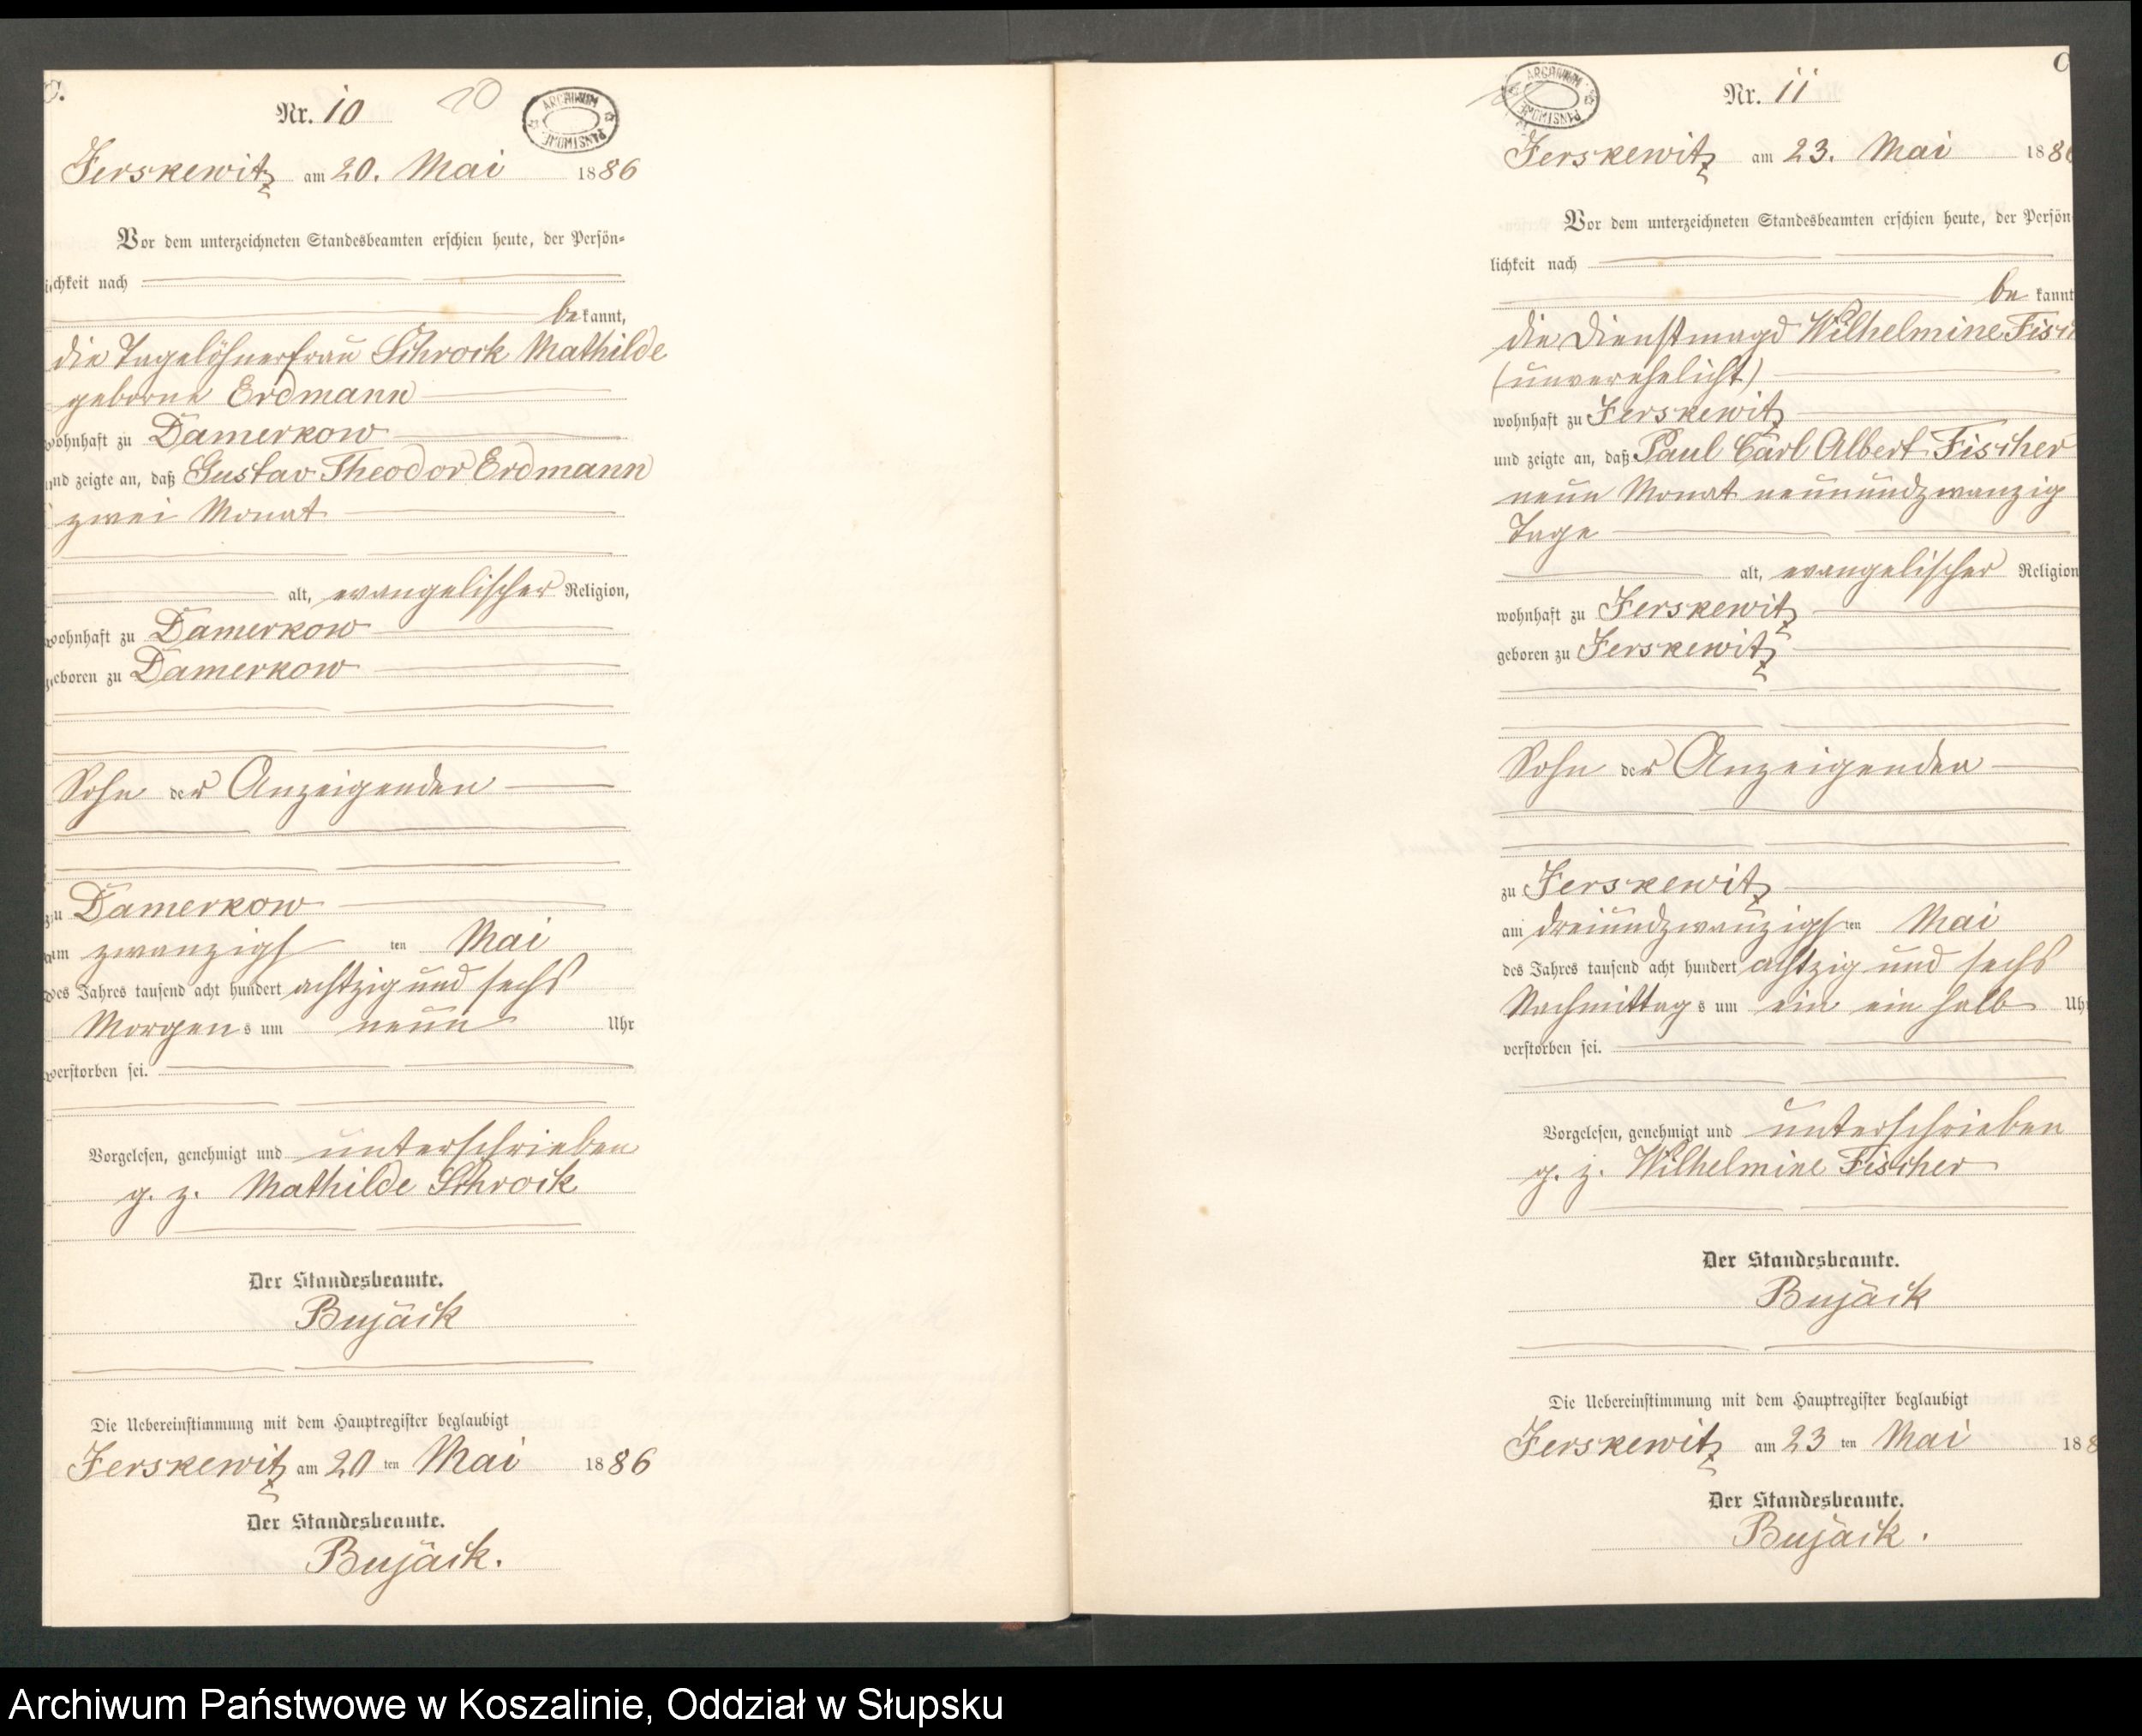 C.
Nr. 10
20
ARCHIWUM PAŃSTWOWE
Jerskewitz am 20. Mai 1886
Vor dem unterzeichneten Standesbeamten erschien heute, der Persön-
lichkeit nach
be kannt,
die Tagelöhnerfrau Schrock Mathilde
geborne Erdmann
wohnhaft zu Damerkow
und zeigte an, daß Gustav Theodor Erdmann
zwei Monat
alt, evangelischer Religion,
wohnhaft zu Damerkow
geboren zu Damerkow
Sohn der Anzeigenden
zu Damerkow
am zwanzigsten Mai
des Jahres tausend acht hundert achtzig und sechs
Morgens um neun Uhr
verstorben sei.
Vorgelesen, genehmigt und unterschrieben
g. z. Mathilde Schrock
Der Standesbeamte.
Bujäck
Die Uebereinstimmung mit dem Hauptregister beglaubigt
Jerskewitz am 20 ten Mai 1886
Der Standesbeamte.
Bujäck.
C
Nr. 11
ARCHIWUM PAŃSTWOWE
Jerskewitz am 23. Mai 1886
Vor dem unterzeichneten Standesbeamten erschien heute, der Persön
lichkeit nach
be kannt
die Dienstmagd Wilhelmine Fisch
(unverehelicht)
wohnhaft zu Jerskewitz
und zeigte an, daß Paul Carl Albert Fischer
neun Monat neunundzwanzig
Tage
alt, evangelischer Religion
wohnhaft zu Jerskewitz
geboren zu Jerskewitz
Sohn der Anzeigenden
zu Jerskewitz
am dreiundzwanzigsten Mai
des Jahres tausend acht hundert achtzig und sechs
Nachmittags um ein ein halb Uhr
verstorben sei.
Vorgelesen, genehmigt und unterschrieben
g. z. Wilhelmine Fischer
Der Standesbeamte.
Bujäck
Die Uebereinstimmung mit dem Hauptregister beglaubigt
Jerskewitz am 23 ten Mai 188
Der Standesbeamte.
Bujäck.
Archiwum Państwowe w Koszalinie, Oddział w Słupsku